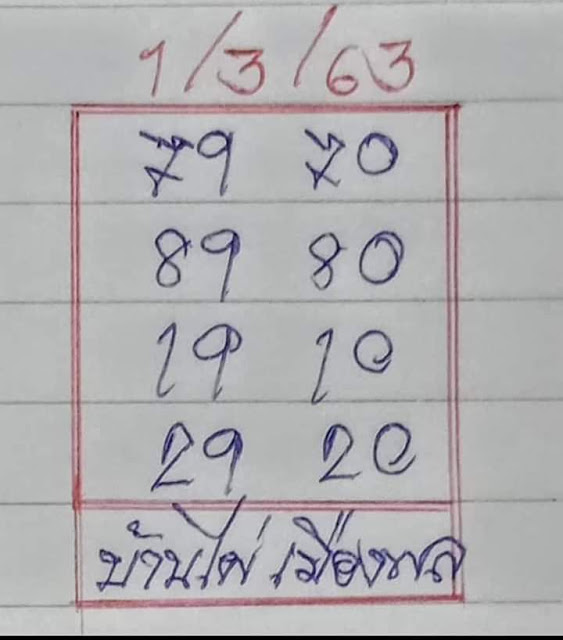 1/3/63
79 70
89 80
19 10
29 20
บ้านไผ่ เมืองพล